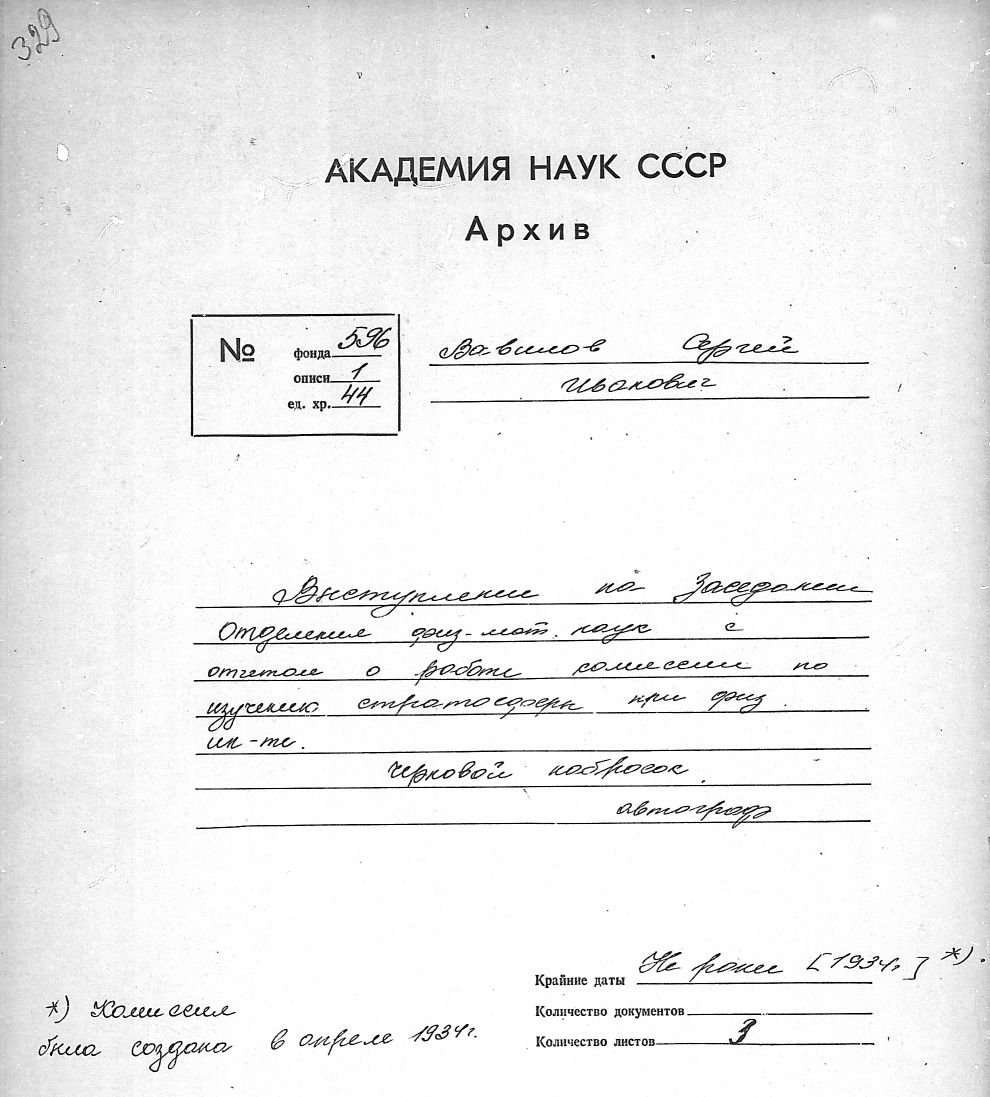 329
АКАДЕМИЯ НАУК СССР
Архив
№ фонда 596
описи 1
ед. хр. 44
Вавилов Сергей
Иванович
Выступление на Заседании
Отделения физ-мат. наук с
отчетом о работе комиссии по
изучению стратосферы при физ.
ин-те.
Черновой набросок.
автограф
Крайние даты Не ранее [1934г.] *).
Количество документов
Количество листов 3
*) Комиссия
была создана в апреле 1934г.